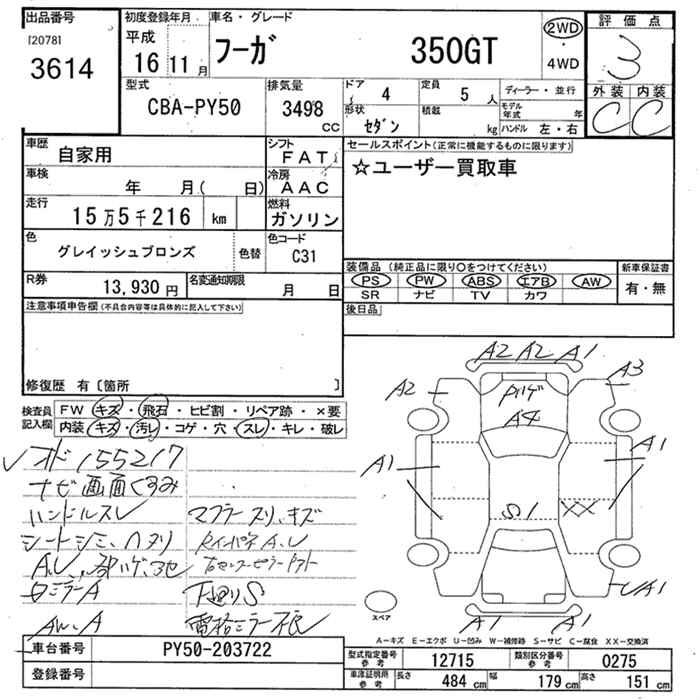 出品番号
[2078]
3614
初度登録年月
平成
16 11 月
車名・グレード
フーガ 350GT
2WD
・
4WD
評価点
3
外装 内装
C C
型式
CBA-PY50
排気量
3498 cc
ドア 4
形状 セダン
定員 5 人
積載 kg
ディーラー・並行
モデル年式 年
ハンドル 左・右
車歴
自家用
シフト
FAT
車検
年 月( 日)
冷房
AAC
走行
15万5千216 km
燃料
ガソリン
色
グレイッシュブロンズ
色替
色コード
C31
R券
13,930 円
名変通知期限
月 日
セールスポイント(正常に機能するものに限ります)
☆ユーザー買取車
装備品 (純正品に限り○をつけてください)
PS PW ABS エアB AW
SR ナビ TV カワ
新車保証書
有・無
後日品
注意事項申告欄(不具合内容等は具体的に記入して下さい)
修復歴 有〔箇所 〕
検査員記入欄
FW キズ・飛石・ヒビ割・リペア跡・×要
内装・キズ・汚レ・コゲ・穴・スレ・キレ・破レ
オド155217
ナビ画面くすみ
ハンドルスレ
シートシミ、ヘタリ
マフラースリ、キズ
下廻りS
ロミラーA
AW、A
電格ミラー不良
A2 A2 A1
A2
A3
A4
A1
A1
S1
XX
UA1
A1 A1
スペア
A-キズ E-エクボ U-凹み W-補修跡 S-サビ C-腐食 XX-交換済
車台番号 PY50-203722
登録番号
型式指定番号 参考 12715
類別区分番号 参考 0275
車庫証明所 参考
長さ 484 cm
幅 179 cm
高さ 151 cm